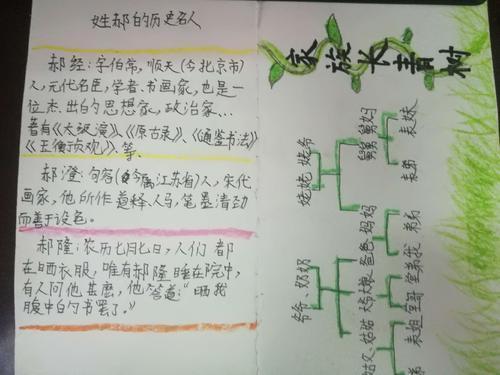 姓郝的历史名人
郝经:字伯常,顺天(今北京市)
人,元代名臣,学者、书画家,也是一
位杰出的思想家,政治家...
著有《太极演》、《原古录》、《通鉴书法》
《玉衡贞观》、等、
郝澄:句容(今属江苏省)人,宋代
画家,他所作道释人马,笔墨清劲
而善于设色。
郝隆:农历七月七日,人们都
在晒衣服,唯有郝隆睡在院中,
有人问他甚麽,他答道:“晒我
腹中的书罢了。”
家族长青树
姥姥 姥爷
舅舅 舅妈
表弟 表妹
爷爷、奶奶
姑姑 大爷 大娘 爸爸 妈妈
表姐 堂哥 堂弟 我 弟弟